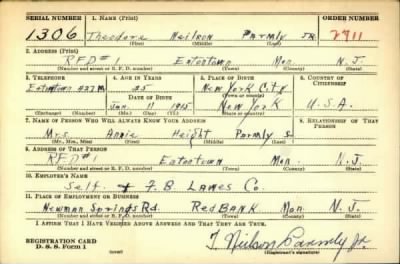 SERIAL NUMBER 1. NAME (Print) ORDER NUMBER
1306 Theodore Neilson Parmly JR 2911
(First) (Middle) (Last)
2. ADDRESS (Print)
RFD#1 Eatontown Mon. N.J.
(Number and street or R. F. D. number) (Town) (County) (State)
3. TELEPHONE 4. AGE IN YEARS 5. PLACE OF BIRTH 6. COUNTRY OF CITIZENSHIP
Eatontown 25 New York City
DATE OF BIRTH (Town or county)
Jan. 11 1915 New York U.S.A.
(Exchange) (Number) (Mo.) (Day) (Yr.) (State or country)
7. NAME OF PERSON WHO WILL ALWAYS KNOW YOUR ADDRESS 8. RELATIONSHIP OF THAT PERSON
Mrs. Annie Height Parmly
(Mr., Mrs., Miss) (First) (Middle) (Last)
9. ADDRESS OF THAT PERSON
RFD#1 Eatontown Mon. N.J.
(Number and street or R. F. D. number) (Town) (County) (State)
10. EMPLOYER'S NAME
Self. & F. B. Lawes Co.
11. PLACE OF EMPLOYMENT OR BUSINESS
Newman Springs Rd. Red Bank Mon. N.J.
(Number and street or R. F. D. number) (Town) (County) (State)
I AFFIRM THAT I HAVE VERIFIED ABOVE ANSWERS AND THAT THEY ARE TRUE.
REGISTRATION CARD
D. S. S. Form 1 (over) T. Neilson Parmly Jr.
(Registrant's signature)